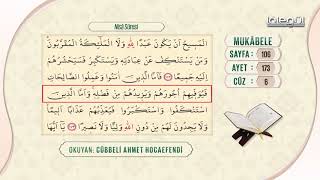 lâlegül
Nisâ Sûresi
الْمَسِيحُ اَنْ يَكُونَ عَبْدًا لِلّٰهِ وَلَا الْمَلٰٓئِكَةُ الْمُقَرَّبُونَ
وَمَنْ يَسْتَنْكِفْ عَنْ عِبَادَتِهِ وَيَسْتَكْبِرْ فَسَيَحْشُرُهُمْ
اِلَيْهِ جَمِيعًا ﴿١٧٢﴾ فَاَمَّا الَّذِينَ اٰمَنُوا وَعَمِلُوا الصَّالِحَاتِ
فَيُوَفِّيهِمْ اُجُورَهُمْ وَيَزِيدُهُمْ مِنْ فَضْلِهِ وَاَمَّا الَّذِينَ
اسْتَنْكَفُوا وَاسْتَكْبَرُوا فَيُعَذِّبُهُمْ عَذَابًا اَلِيمًا
وَلَا يَجِدُونَ لَهُمْ مِنْ دُونِ اللّٰهِ وَلِيًّا وَلَا نَصِيرًا ﴿١٧٣﴾ يَٓا اَيُّهَا
MUKABELE
SAYFA : 106
AYET : 173
CÜZ : 6
OKUYAN: CÜBBELİ AHMET HOCAEFENDİ